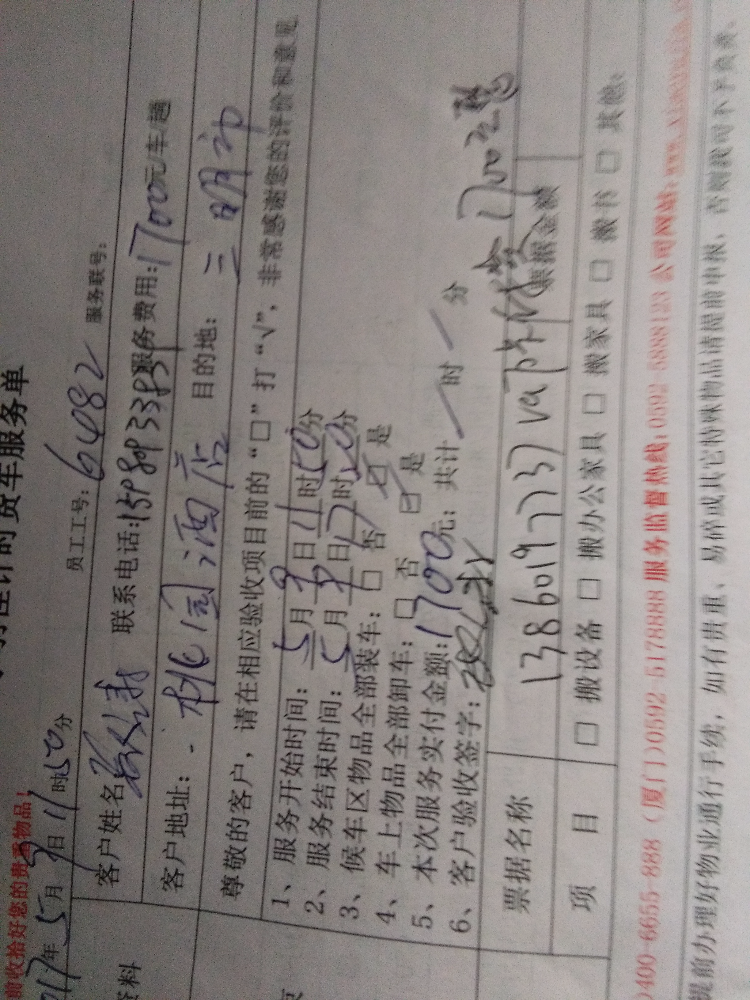 前收拾好您的贵重物品!
计时货车服务单
017年5月9日11时50分 员工工号:6482 服务联号:
资料
客户姓名 联系电话: 服务费用:1700元/车/趟
客户地址: 桃园酒店 目的地: 三明市
尊敬的客户,请在相应验收项目前的“□”打“√”,非常感谢您的评价和意见
1、服务开始时间:5月9日11时50分
2、服务结束时间:5月9日17时20分
3、候车区物品全部装车:□否 ☑是
4、车上物品全部卸车:□否 ☑是
5、本次服务实付金额:1700元; 共计 时 分
6、客户验收签字:
票据名称 票据金额
项 目 □搬设备 □搬办公家具 □搬家具 □搬书 □其他:
400-6655-888(厦门)0592-5178888 服务监督热线:0592-5888123 公司网站:
提前办理好物业通行手续,如有贵重、易碎或其它特殊物品请提前申报,否则我司不予负责。